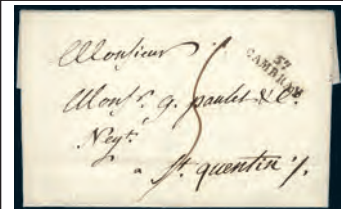 Monsieur
57
CAMBRAY
Mons.r g. paulet & C.e
Neg.t
a St. quentin